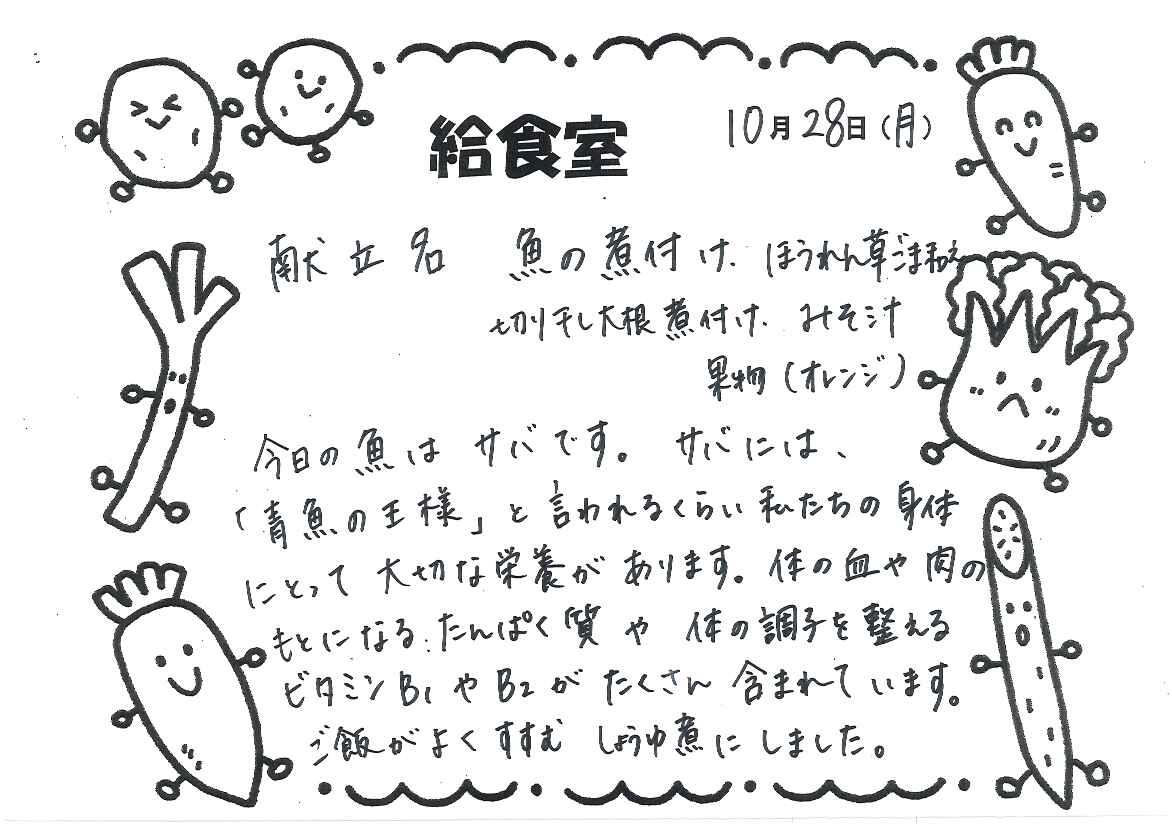 給食室
10月28日(月)
献立名 魚の煮付け、ほうれん草ごま和え
切り干し大根煮付け、みそ汁
果物(オレンジ)
今日の魚は サバです。 サバには、
「青魚の王様」と言われるくらい私たちの身体
にとって 大切な栄養が あります。体の血や肉の
もとになる、たんぱく質や 体の調子を整える
ビタミンB₁やB₂が たくさん 含まれています。
ご飯がよくすすむ しょうゆ煮にしました。